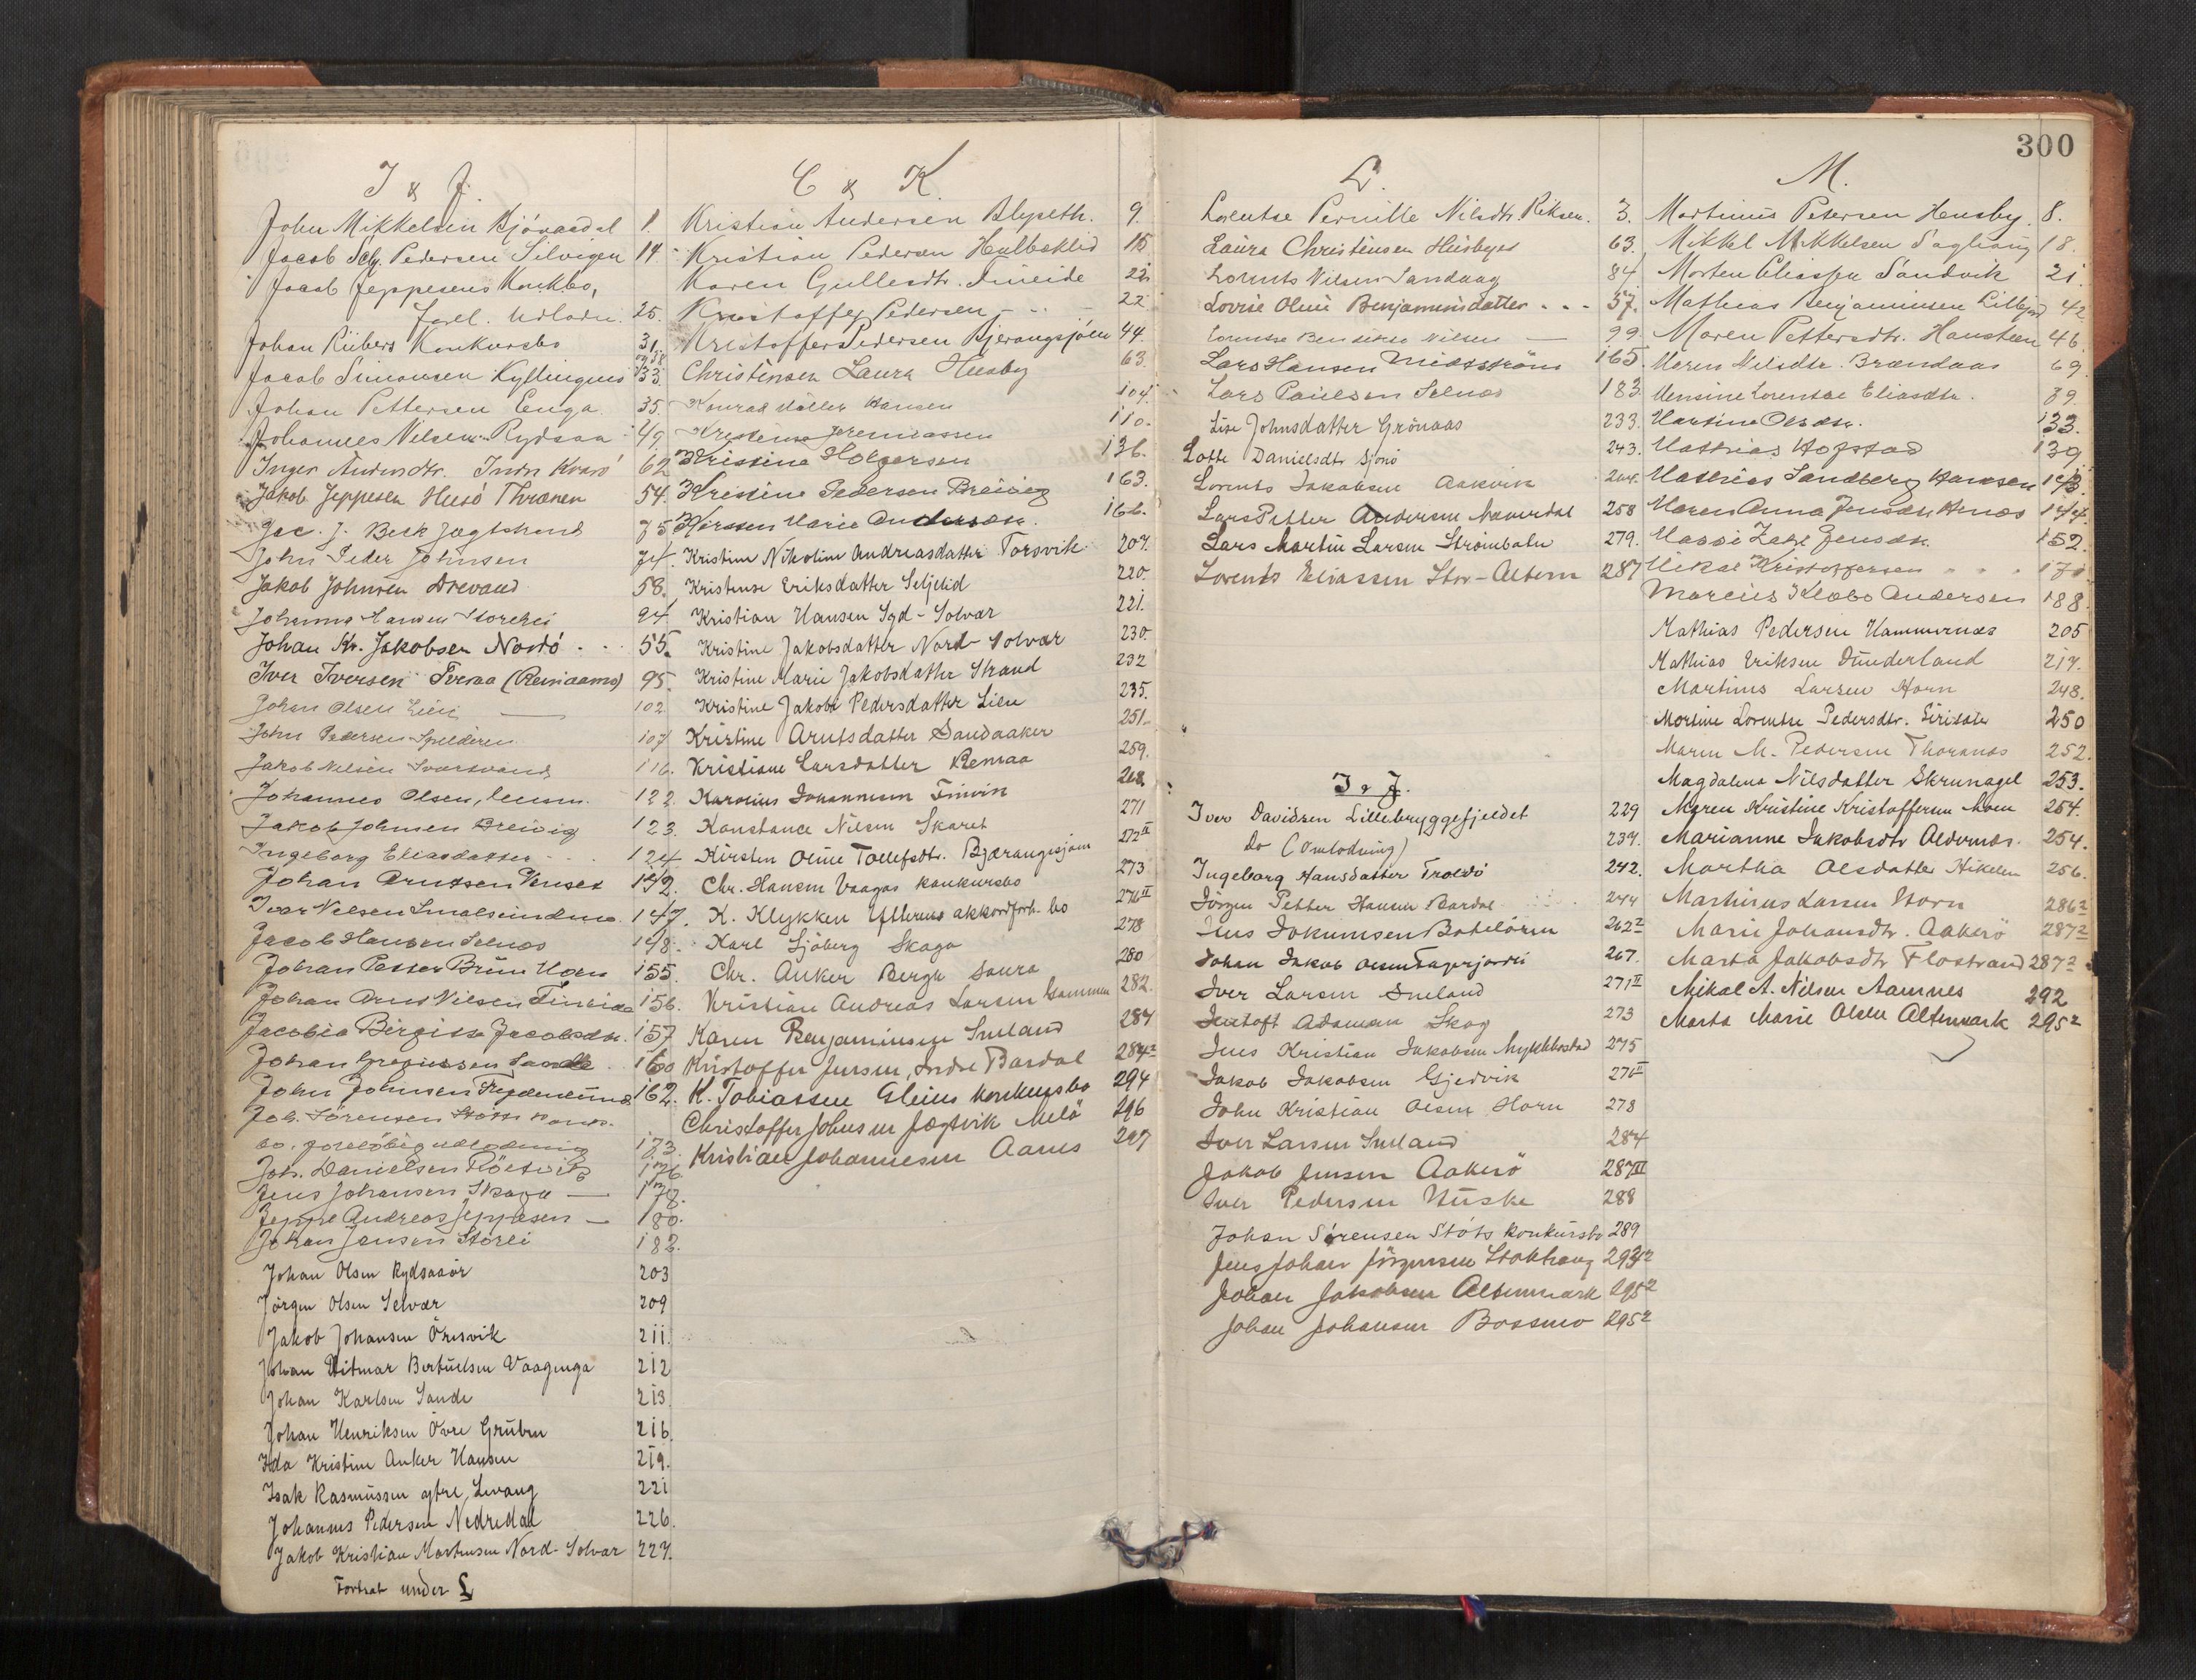 I & J.
John Mikkelsen Kjönaasdal 1.
Jacob Schj. Pedersen Selvigen 14
Jacob Jeppesens Konkbo,
forel. Udlodn. 25.
Johan Rübers Konkursbo 31.
Jacob Simonsen Kyllingmo 33.
Johan Pettersen Enga 35.
Johannes Nilsen Rydsaa 49
Inger Andersdtr. Indre Kvarö 62
Jakob Jeppesen Husö Thrænen 54.
Jac. J. Beck Jægtskind 75
John Peder Johnsen 74.
Jakob Johnsen Drevand 58.
Johanna Hansen Storelii 94
Johan Kr. Jakobsen Nordö 55.
Iver Iversen Tveraa (Renaamo) 95.
Johan Olsen Lien 102
John Pedersen Spelderen 107
Jakob Nilsen Svartvand 116.
Johannes Olsen, 122.
Jakob Johnsen Breivig 123.
Ingeborg Eliasdatter 124
Johan Arntsen Venset 142.
Ivar Nilsen Smalsundmo 147.
Jacob Hansen Selnæs 148.
Johan Petter Brün Moen 155.
Johan Arnt Nilsen Fineide 156.
Jacobia Birgitte Jacobsdtr. 157
Johan Gregussen Sande 160
John Johnsen 162.
Joh. Sörensen Stötts konk.
bo. foreløbig udlodning 173.
Joh. Danielsen Röstvik 176
Jens Johansen Skaga 178.
Jeppe Andreas Jeppesen 180.
Johan Jensen Storli 182.
Johan Olsen Rydsaaör 203
Jörgen Olsen Selvær 209
Jakob Johansen Öresvik 211.
Johan Hitmar Bertüelsen Vaagenga 212
Johan Karlsen Sande 213
Johan Henriksen Övre Grüben 216.
Ida Kristine Anker Hansen 219.
Isak Rasmussen ytre Levang 221
Johannes Pedersen Nedredal 226.
Jakob Kristian Mortensen Nord-Solvær 227.
Fortsat under L
C & K
Kristian Andersen Blyseth. 9.
Kristian Pedersen Hulbæklid 15
Karen Gullesdtr. Fineide 22
Kristoffer Pedersen 22
Kristoffer Pedersen Bjerangsjöen 44.
Christensen Laura Huusby 63.
Konrad Möller Hansen 104.
Kristense Jeremiassen 110.
Kristine Holgersen 136.
Kristine Pedersen Breivig 163.
Kirsten Marie Andersdtr. 166.
Kristine Nikoline Andreasdatter Forsvik 207.
Kristense Eriksdatter Seljelid 220.
Kristian Hansen Syd-Solvær 221.
Kristine Jakobsdatter Nord-Solvær 230.
Kristine Marie Jakobsdatter Strand 232
Kristine Jakobe Pedersdatter Lien 235.
Kristine Arntsdatter Sandaaker 251
Kristiane Larsdatter Remaa 259.
Karolius Johannesen Finvik 268
Konstance Nilsen Skaret 271
Kirsten Oline Tollefsdtr. Bjærangsjöen 272 II
Chr. Hansen Vaagas konkursbo 273
K. Klykken Ytterens akkordforh. bo 276 II
Karl Sjöberg Skaga 278
Chr. Anker Bergh Saura 280
Kristian Andreas Larsen 282.
Karen Benjaminsen Smeland 284
Kristoffer Jensen, Indre Bardal 284 2
K. Tobiassen Gleins konkursbo 294
Christoffer Johnsen Jægtvik Melö 296
Kristian Johannesen Aanes 297
300
L.
Lorentse Pernille Nilsdtr. 3.
Laura Christensen Huusbyes 63.
Lorents Nilsen Sandaag 84
Lovise Oline Benjaminsdatter 57.
Lorentse Bendikse Nilsen 99.
Lars Hansen Midtström 165
Lars Paülsen Selnæs 183.
Lise Johnsdatter Grönaas 233.
Lotte Danielsdtr Sjonö 243.
Lorents Jakobsen Aakvik 244.
Lars Petter Andersen Næverdal 258
Lars Martin Larsen Strömbotn 279.
Lorents Eliassen Stor-Altern 287
I & J.
Iver Davidsen Lillebryggefjeldet 229
do (Omlodning) 239.
Ingeborg Hansdatter Troldö 242.
Jörgen Petter Hansen Bardal 244
Jens Jokumsen Botelören 262 2
Johan Jakob Olsen Fagerjorden 267.
Iver Larsen Smeland 271 II
Jentoft Adamsen Skog 273
Jens Kristian Jakobsen Myklebostad 275
Jakob Jakobsen Gjervik 276 II
John Kristian Olsen Horn 278
Iver Larsen Smeland 284
Jakob Jensen Aakerö 287 III
Iver Pedersen Huske 288
Johan Sörensen Stöts konkursbo 289
Jens Johan Jörgensen Stokhaug 293 2
Johan Jakobsen Altermark 295 2
Johan Johansen Bossmo 295 2
M.
Martinus Petersen Heusby. 8.
Mikkel Mikkelsen Saghaug 18.
Morten Eliassen Sandvik 21
Mathias Benjaminsen Lillefjord 42
Maren Pettersdtr. Hansteen 46.
Maren Nilsdtr. Brændaas 69.
Mensine Lorentse Eliasdtr. 89.
Martine Olsdtr. 133.
Mathias Hofstad 139
Mathias Sandberg Hansen 143.
Maren Anna Jensdtr Ænes 144.
Massi Zake Jensdtr. 152.
Mikal Kristoffersen 170
Marcüs Klæbo Andersen 188
Mathias Pedersen Hammernæs 205
Mathias Eriksen Dunderland 217.
Martinus Larsen Horn 248.
Martine Lorentse Pedersdtr. 250
Maren M. Pedersen Thorsnæs 252.
Magdalena Nilsdatter Skrunagel 253.
Maren Kristine Kristoffersen Moen 254.
Marianne Jakobsdtr Aldernæs. 254.
Martha Olsdatter Hikelen 256.
Martinus Larsen Horn 286 2
Marie Johansdtr. Aakerö 287 2
Marta Jakobsdtr Flostrand 287 2
Mikal A. Nilsen Aamnes 292
Marta Marie Olsen Altermark 295 2